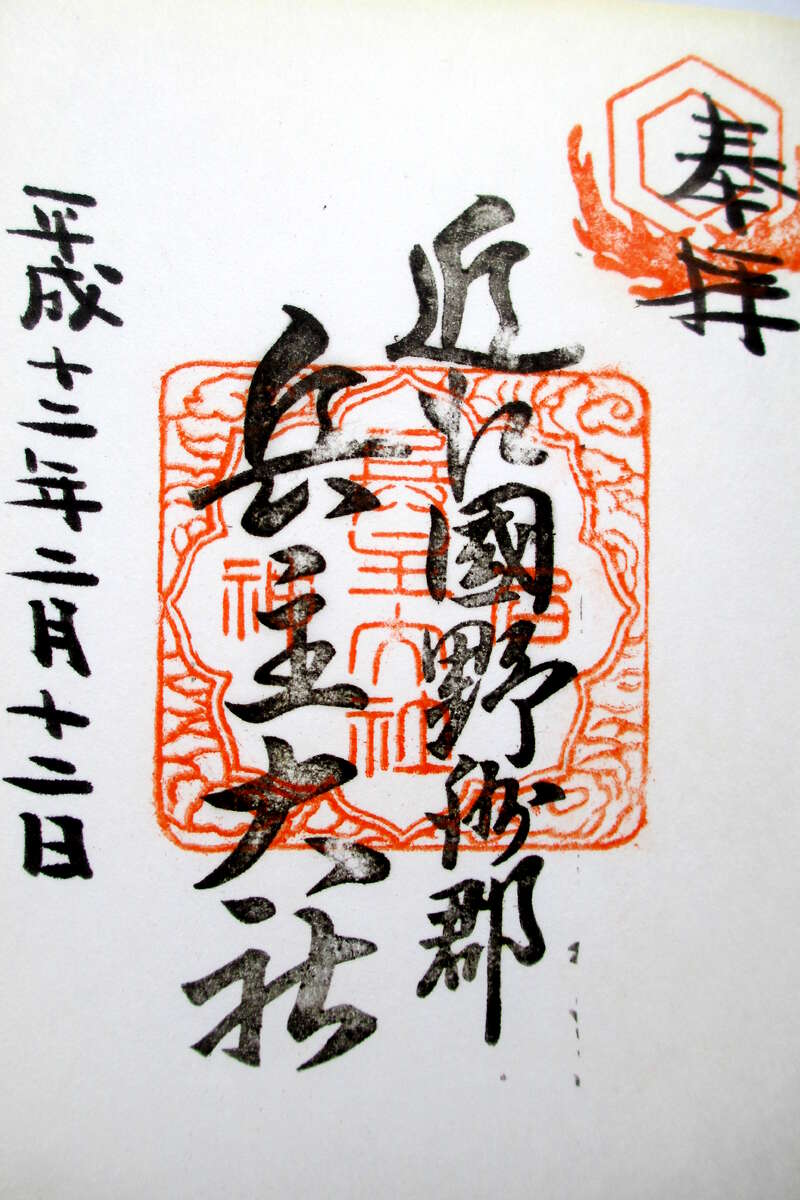 奉拝
近江國野洲郡
兵主大社
兵主大社
平成十二年二月十二日